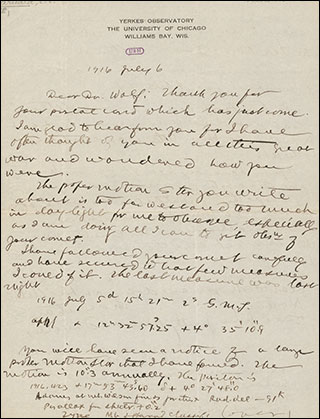 YERKES OBSERVATORY
THE UNIVERSITY OF CHICAGO
WILLIAMS BAY, WIS.
1916 July 6
Dear Dr. Wolf: Thank you for
your postal card which has just come.
I am glad to hear from you for I have
often thought of you in all this great
war and wondered how you
were.
The proper motion star you write
about is too far west and too much
in day-light for me to observe, especially
as I am doing all I can to get obsns of
your comet.
I have followed your comet carefully
and have secured what few measures
I could of it. The last measure was last
night
1916 July 5d 15h 21m 2s G.M.T.
α 12h 32m + 4° 35'
You will have seen a notice of a large
proper motion star that I have found. The
motion is 10".3 annually. The position is
1916.423 α 17h 53m δ + 4° 27'
parallax